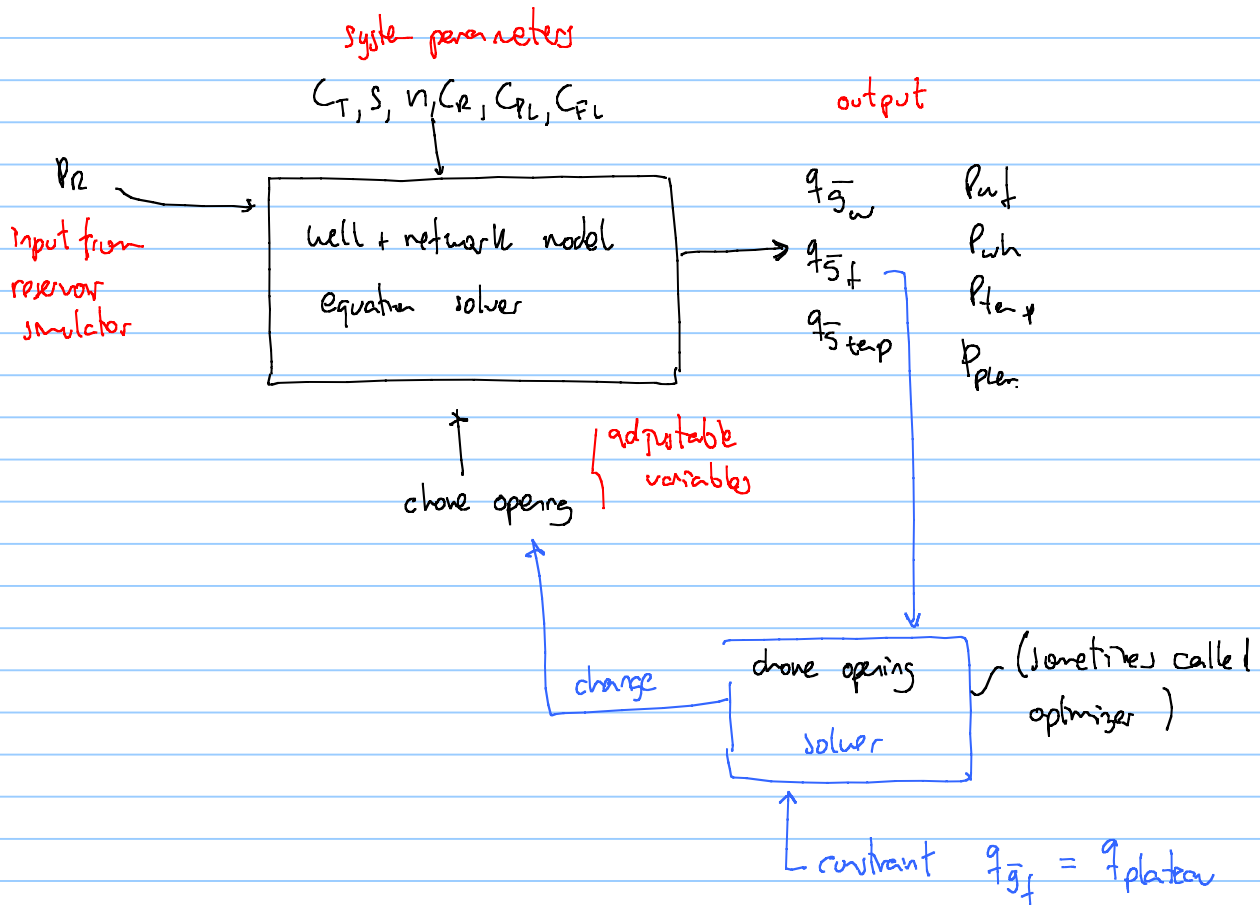 system parameters
C_T, S, n, C_R, C_PL, C_FL
output
P_R
input from
reservoir
simulator
well + network model
equation solver
q_g̅w
q_g̅f
q_g̅temp
P_wf
P_wh
P_temp
P_plem
adjustable
variables
choke opening
change
choke opening
solver
(sometimes called
optimizer)
constraint q_g̅f = q_plateau